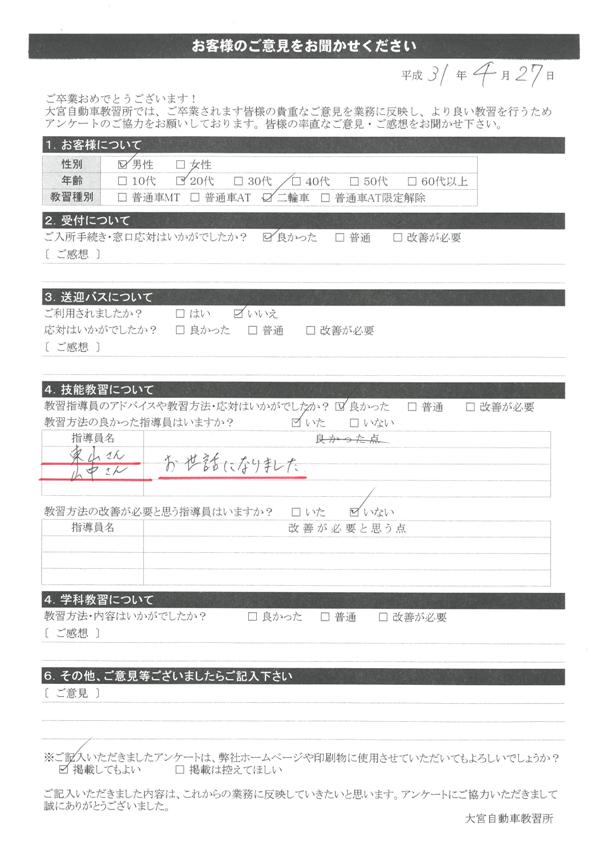 お客様のご意見をお聞かせください
平成 31 年 4 月 27 日
ご卒業おめでとうございます！
大宮自動車教習所では、ご卒業されます皆様の貴重なご意見を業務に反映し、より良い教習を行うため
アンケートのご協力をお願いしております。皆様の率直なご意見・ご感想をお聞かせ下さい。
1．お客様について
性別 ☑男性 □女性
年齢 □10代 ☑20代 □30代 □40代 □50代 □60代以上
教習種別 □普通車MT □普通車AT ☑二輪車 □普通車AT限定解除
2．受付について
ご入所手続き・窓口応対はいかがでしたか？ ☑良かった □普通 □改善が必要
〔ご感想〕
3．送迎バスについて
ご利用されましたか？ □はい ☑いいえ
応対はいかがでしたか？ □良かった □普通 □改善が必要
〔ご感想〕
4．技能教習について
教習指導員のアドバイスや教習方法・応対はいかがでしたか？ ☑良かった □普通 □改善が必要
教習方法の良かった指導員はいますか？ ☑いた □いない
指導員名 良かった点
東山さん
山中さん お世話になりました
教習方法の改善が必要と思う指導員はいますか？ □いた ☑いない
指導員名 改善が必要と思う点
4．学科教習について
教習方法・内容はいかがでしたか？ □良かった □普通 □改善が必要
〔ご感想〕
6．その他、ご意見等ございましたらご記入下さい
〔ご意見〕
※ご記入いただきましたアンケートは、弊社ホームページや印刷物に使用させていただいてもよろしいでしょうか？
☑掲載してもよい □掲載は控えてほしい
ご記入いただきました内容は、これからの業務に反映していきたいと思います。アンケートにご協力いただきまして
誠にありがとうございました。
大宮自動車教習所